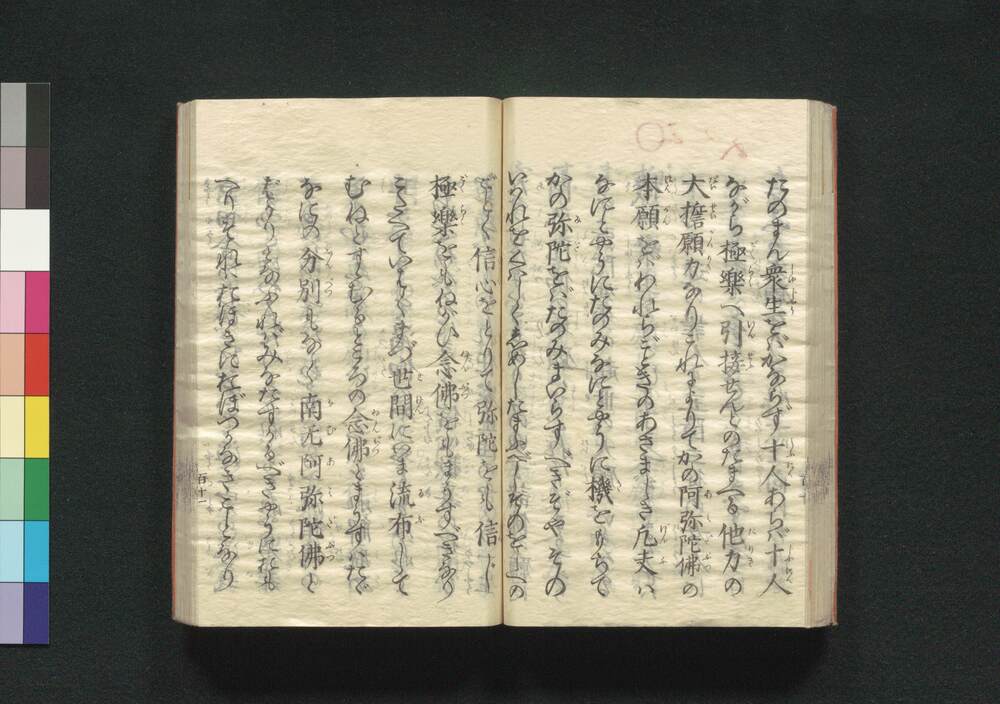 たのまん衆生をばかならず十人あらば十人
ながら極樂へ引接せんとのたまへる他力の
大擔願力なりこれによりてかの阿弥陀佛の
本願をばわれらごときのあさましき凡夫は
なにとやうにたのみなにとやうに機をもちて
かの弥陀をばたのみまいらすべきぞやその
いはれをくはしくしめしたまふべしそのをしへの
ごとく信心をとりて弥陀をも信じ
極樂をもねがひ念佛をもまうすべきなり
こたへていはくまづ世間にいま流布して
むねとすゝむるところの念佛とまうすはたゞ
なにの分別もなく南无阿弥陀佛と
ばかりとなふればみなたすかるべきやうにおも
へりそれはおほきにおぼつかなきことなり
百十一